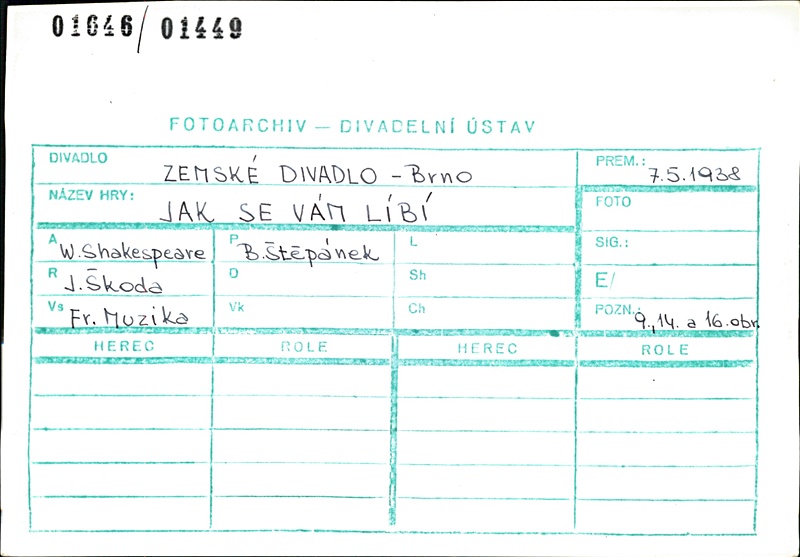 01646/01449
FOTOARCHIV – DIVADELNÍ ÚSTAV
DIVADLO ZEMSKÉ DIVADLO - Brno
PREM.: 7.5.1938
NÁZEV HRY: JAK SE VÁM LÍBÍ
FOTO
A W. Shakespeare
P B. Štěpánek
L
SIG.:
R J. Škoda
D
Sh
E/
Vs Fr. Muzika
Vk
Ch
POZN.: 9., 14. a 16. obr.
HEREC ROLE HEREC ROLE